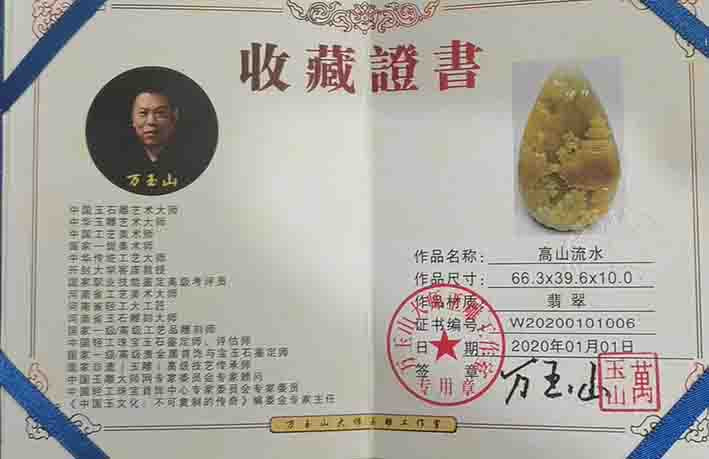 收藏證書
万玉山
中国玉石雕艺术大师
中华玉雕艺术大师
中国工艺美术师
国家一级美术师
中华传统工艺大师
开封大学客座教授
国家职业技能鉴定高级考评员
河南省工艺美术大师
河南省轻工大工匠
河南省玉石雕刻大师
国家一级/高级工艺品雕刻师
中国轻工珠宝玉石鉴定师、评估师
国家一级/高级贵金属首饰与宝玉石鉴定师
国家非遗（玉雕）高级技艺传承师
中国玉雕大师网专家委员会专家顾问
中国轻工珠宝首饰中心专家委员会专家委员
《中国玉文化：不可复制的传奇》编委会专家主任
作品名称： 高山流水
作品尺寸： 66.3x39.6x10.0
作品材质： 翡翠
证书编号： W20200101006
日期 2020年01月01日
签章 万玉山
萬玉山
万玉山大师玉雕工作室
专用章
万玉山大师玉雕工作室